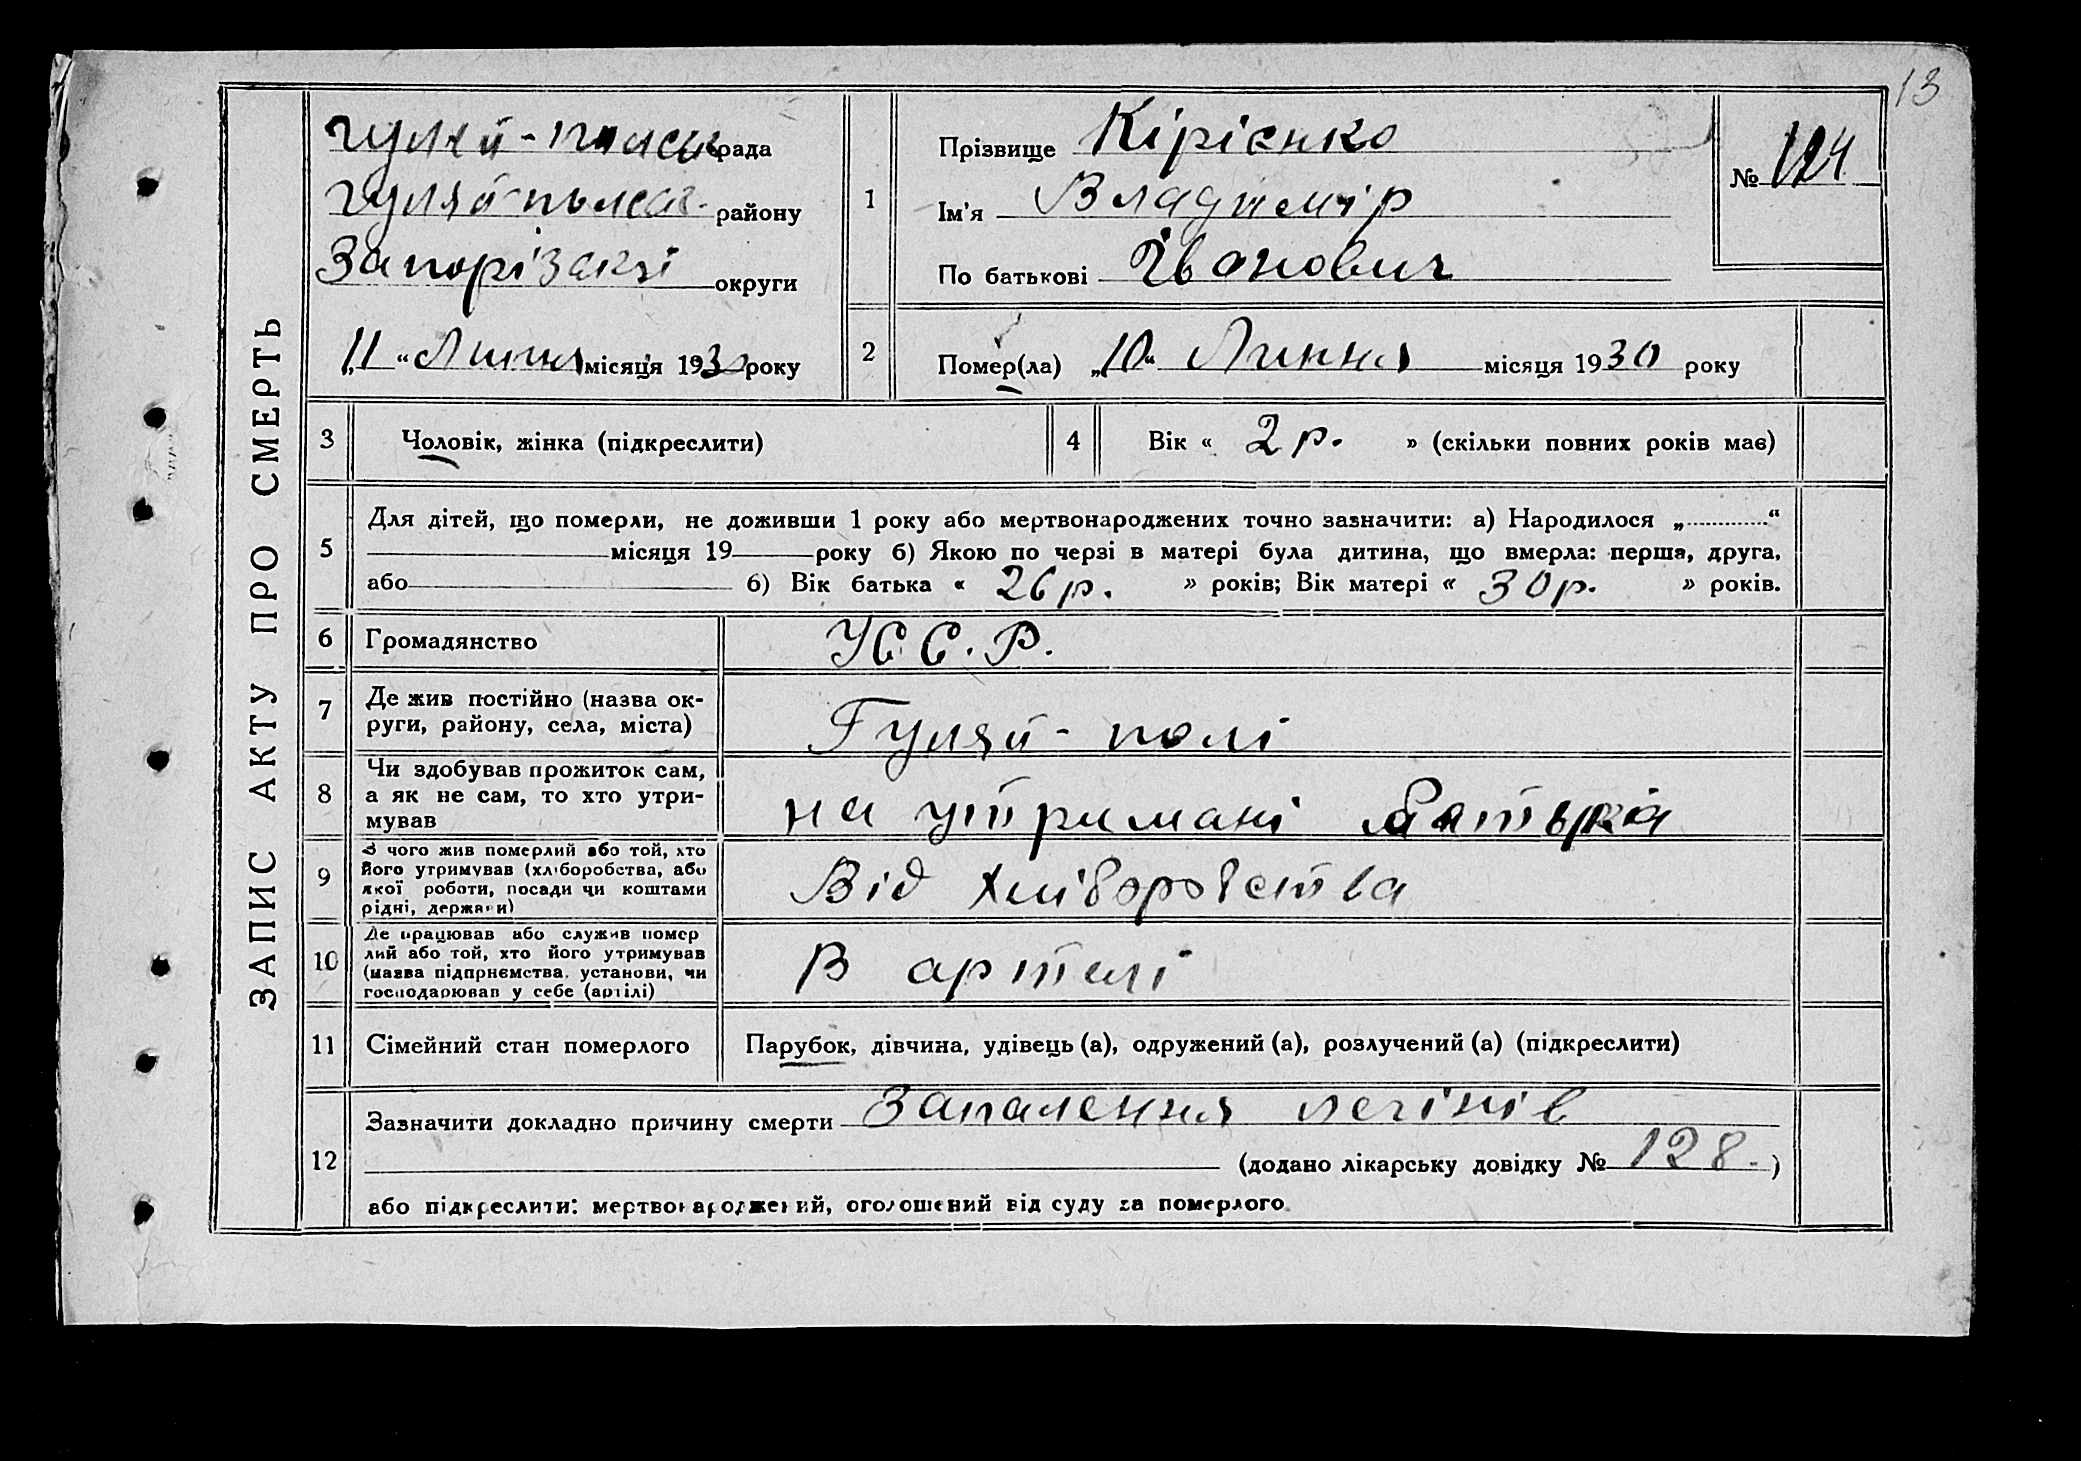 13
ЗАПИС АКТУ ПРО СМЕРТЬ
Гуляй-Польск рада
Гуляй-польськ. району
Запорізькі округи
„11“ Липня місяця 1930 року
1
Прізвище Кірієнко
Ім'я Владимір
По батькові Іванович
№ 124
2
Помер(ла) „10“ Липня місяця 1930 року
3 Чоловік, жінка (підкреслити)
4 Вік « 2 р. » (скільки повних років має)
5
Для дітей, що померли, не доживши 1 року або мертвонароджених точно зазначити: а) Народилося „ “
місяця 19 року б) Якою по черзі в матері була дитина, що вмерла: перша, друга,
або 6) Вік батька « 26 р. » років; Вік матері « 30 р. » років.
6 Громадянство У.С.С.Р.
7 Де жив постійно (назва ок-
руги, району, села, міста)
Гуляй-полі
8 Чи здобував прожиток сам,
а як не сам, то хто утри-
мував
на утримані батька
9 З чого жив померлий або той, хто
його утримував (хліборобства, або
якої роботи, посади чи коштами
рідні, держави)
Від хліборобства
10 Де працював або служив помер
лий або той, хто його утримував
(назва підпрнємства, установи, чи
господарював у себе (артілі)
В артелі
11 Сімейний стан померлого Парубок, дівчина, удівець (а), одружений (а), розлучений (а) (підкреслити)
12
Зазначити докладно причину смерти Запалення легінів
(додано лікарську довідку № 128.)
або підкреслити: мертвонароджений, оголошений від суду за померлого.